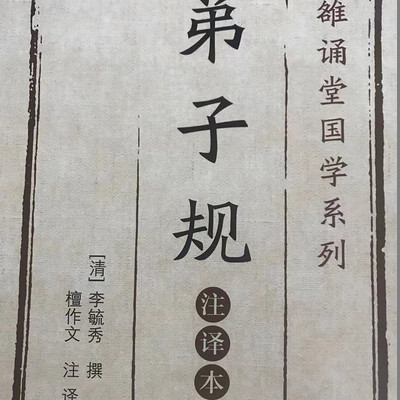 雒诵堂国学系列
弟子规
注译本
[清]李毓秀 撰
檀作文 注 译